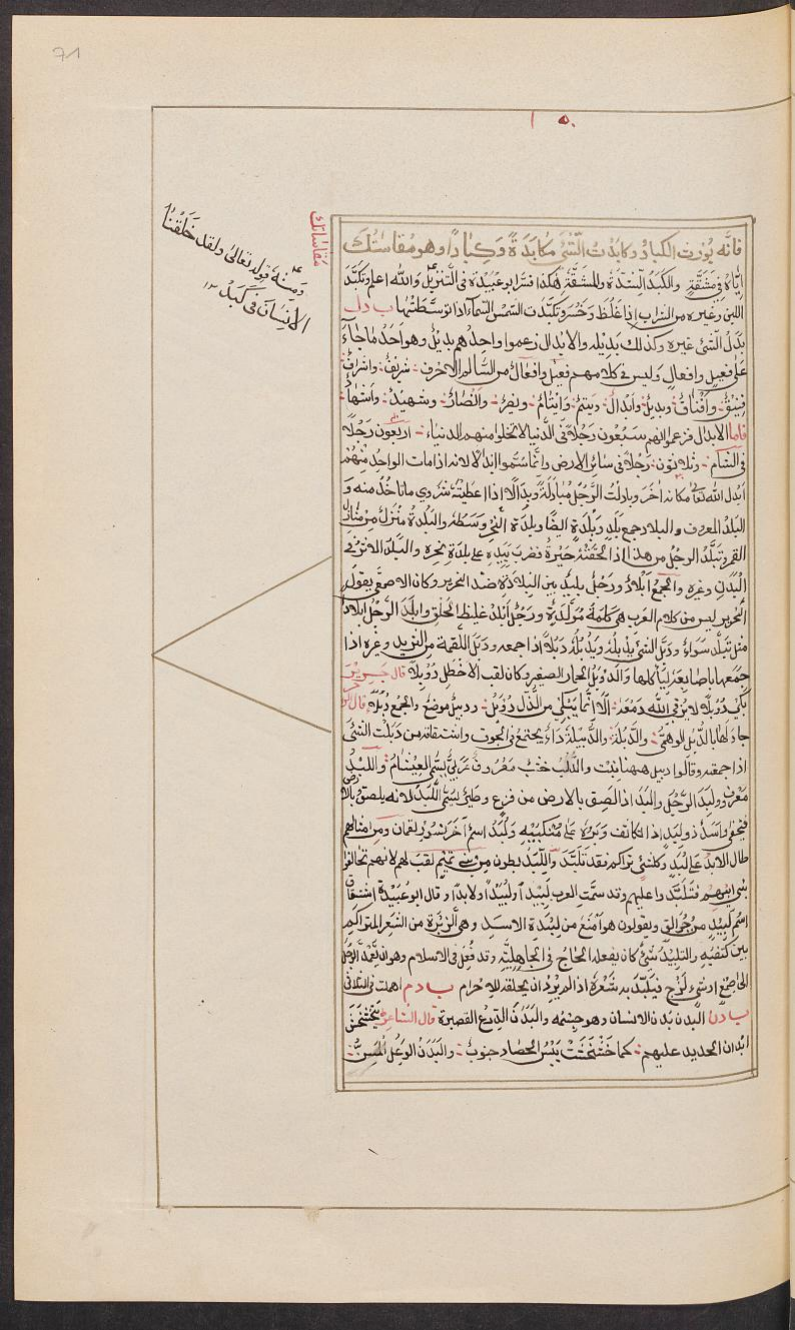 71
فانّه يُورث الكباد وكابدت الشّئ مكابَدَةً وَكِبَادًا وهو مقاساتك
مقاساتك
ومنه قوله تعالى ولقد خلقنا
الانسان فى كبد ١٢
ايّاه فى مشقّةٍ والكَبَدُ الشدّة والمشقّة هكذا فسّر ابوعبيدة فى التّنزيل والله اعلم وتكبّد
اللبن وغيره من الشراب اذا غلظ وخثر وتكبّدت الشمس السّماء اذا توسّطتها ب د ل
بدل الشئ غيره وكذلك بديله والابدال زعموا واحدهم بديل وهو احد ما جاء
على فعيل وافعال وليس فى كلامهم فعيل وافعال من السّالم الا احرف شريف واشراف
فنيق وافناق وبديل وابدال ويتيم وايتام ونصير وانصار وشهيد واشهاد
فاما الابدال فزعموا انهم سبعون رجلا فى الدنيا لا تخلوا منهم الدنيا اربعون رجلا
فى الشام وثلاثون رجلا فى سائر الارض وانّما سمّوا ابدالا لانه اذا مات الواحد منهم
ابدل الله تعالى مكانه آخر وبادلت الرّجل مبادلة وبدالا اذا اعطيته شروى ما تاخذ منه و
البلد المعروف والبلاد جمع بلد وبلدة ايضا وبلدة النحر وسطه والبلدة منزل من منازل
القمر وتبلّد الرجل من هذا اذا لحقته حيرة فضرب بيده على بلدة نحره والبلد الاثر فى
البدن وغيره والجمع ابلاد ورجل بليد بين البلادة ضد النحرير وكان الاصمعى يقول
النحرير ليس من كلام العرب هى كلمة مولّدة ورجل ابلد غليظ الخلق وابلد الرّجل ابلادا
مثل تبلّد سواء ودبل الشئ يدبله ويدبله دبلا اذا جمعه ودبل اللقمة من الثريد وغيره اذا
جمعها باصابعه ليأكلها والدوبل الحمار الصغير وكان لقب الاخطل دوبلا قال جرير
بكى دوبل لا يرقئ الله دمعه الا انما يبكى من الذّل دوبل ودبيل موضع والجمع دبل قال الر
جاد لها بالدبل الوسمى والدبلة والدّبيلة داء يجتمع فى الجوف واشتقاقه من دبلت الشئ
اذا جمعته وقالوا دبيل ههنا نبت والدّلب خشب معروف عربى يسمّى العيثام واللبد
معروف ولبد الرّجل والبد اذا لصق بالارض من فزع وطير يسمّى اللّبد لانه يلصق بالارض
فيخفى واسد ذو لبد اذا تكاثف وبره على منكبيه ولبد اسم آخر نسور لقمان ومن امثالهم
طال الابد على لبد وكلّ شئ تراكم فقد تلبّد واللّبد بطون من بنى تميم لقب لهم لانهم تحالفوا
بنى ابيهم فتلبّدوا عليهم وقد سمّت العرب لبيدا ولبيدا ولابدا وقال ابوعبيدة اشتقاق
اسم لبيد من جوالق ويقولون هو امنع من لبدة الاسد وهى الزبرة من الشعر المتراكم
بين كتفيه والتلبيد شئ كان يفعله الحاجّ فى الجاهليّة وقد فعل فى الاسلام وهو ان يعمد الرجل
الى صمغ او شئ لزج فيلبّد به شعره اذا لم يُرد ان يحلقه للاحرام ب د م اهملت فى الثلاثى
ب د ن البدن بدن الانسان وهو جسمه والبدن الدّرع القصيرة قال الشاعر تخشخش
ابدان الحديد عليهم كما خشخشت يبس الحصاد جنوب والبدن الوعل المسنّ